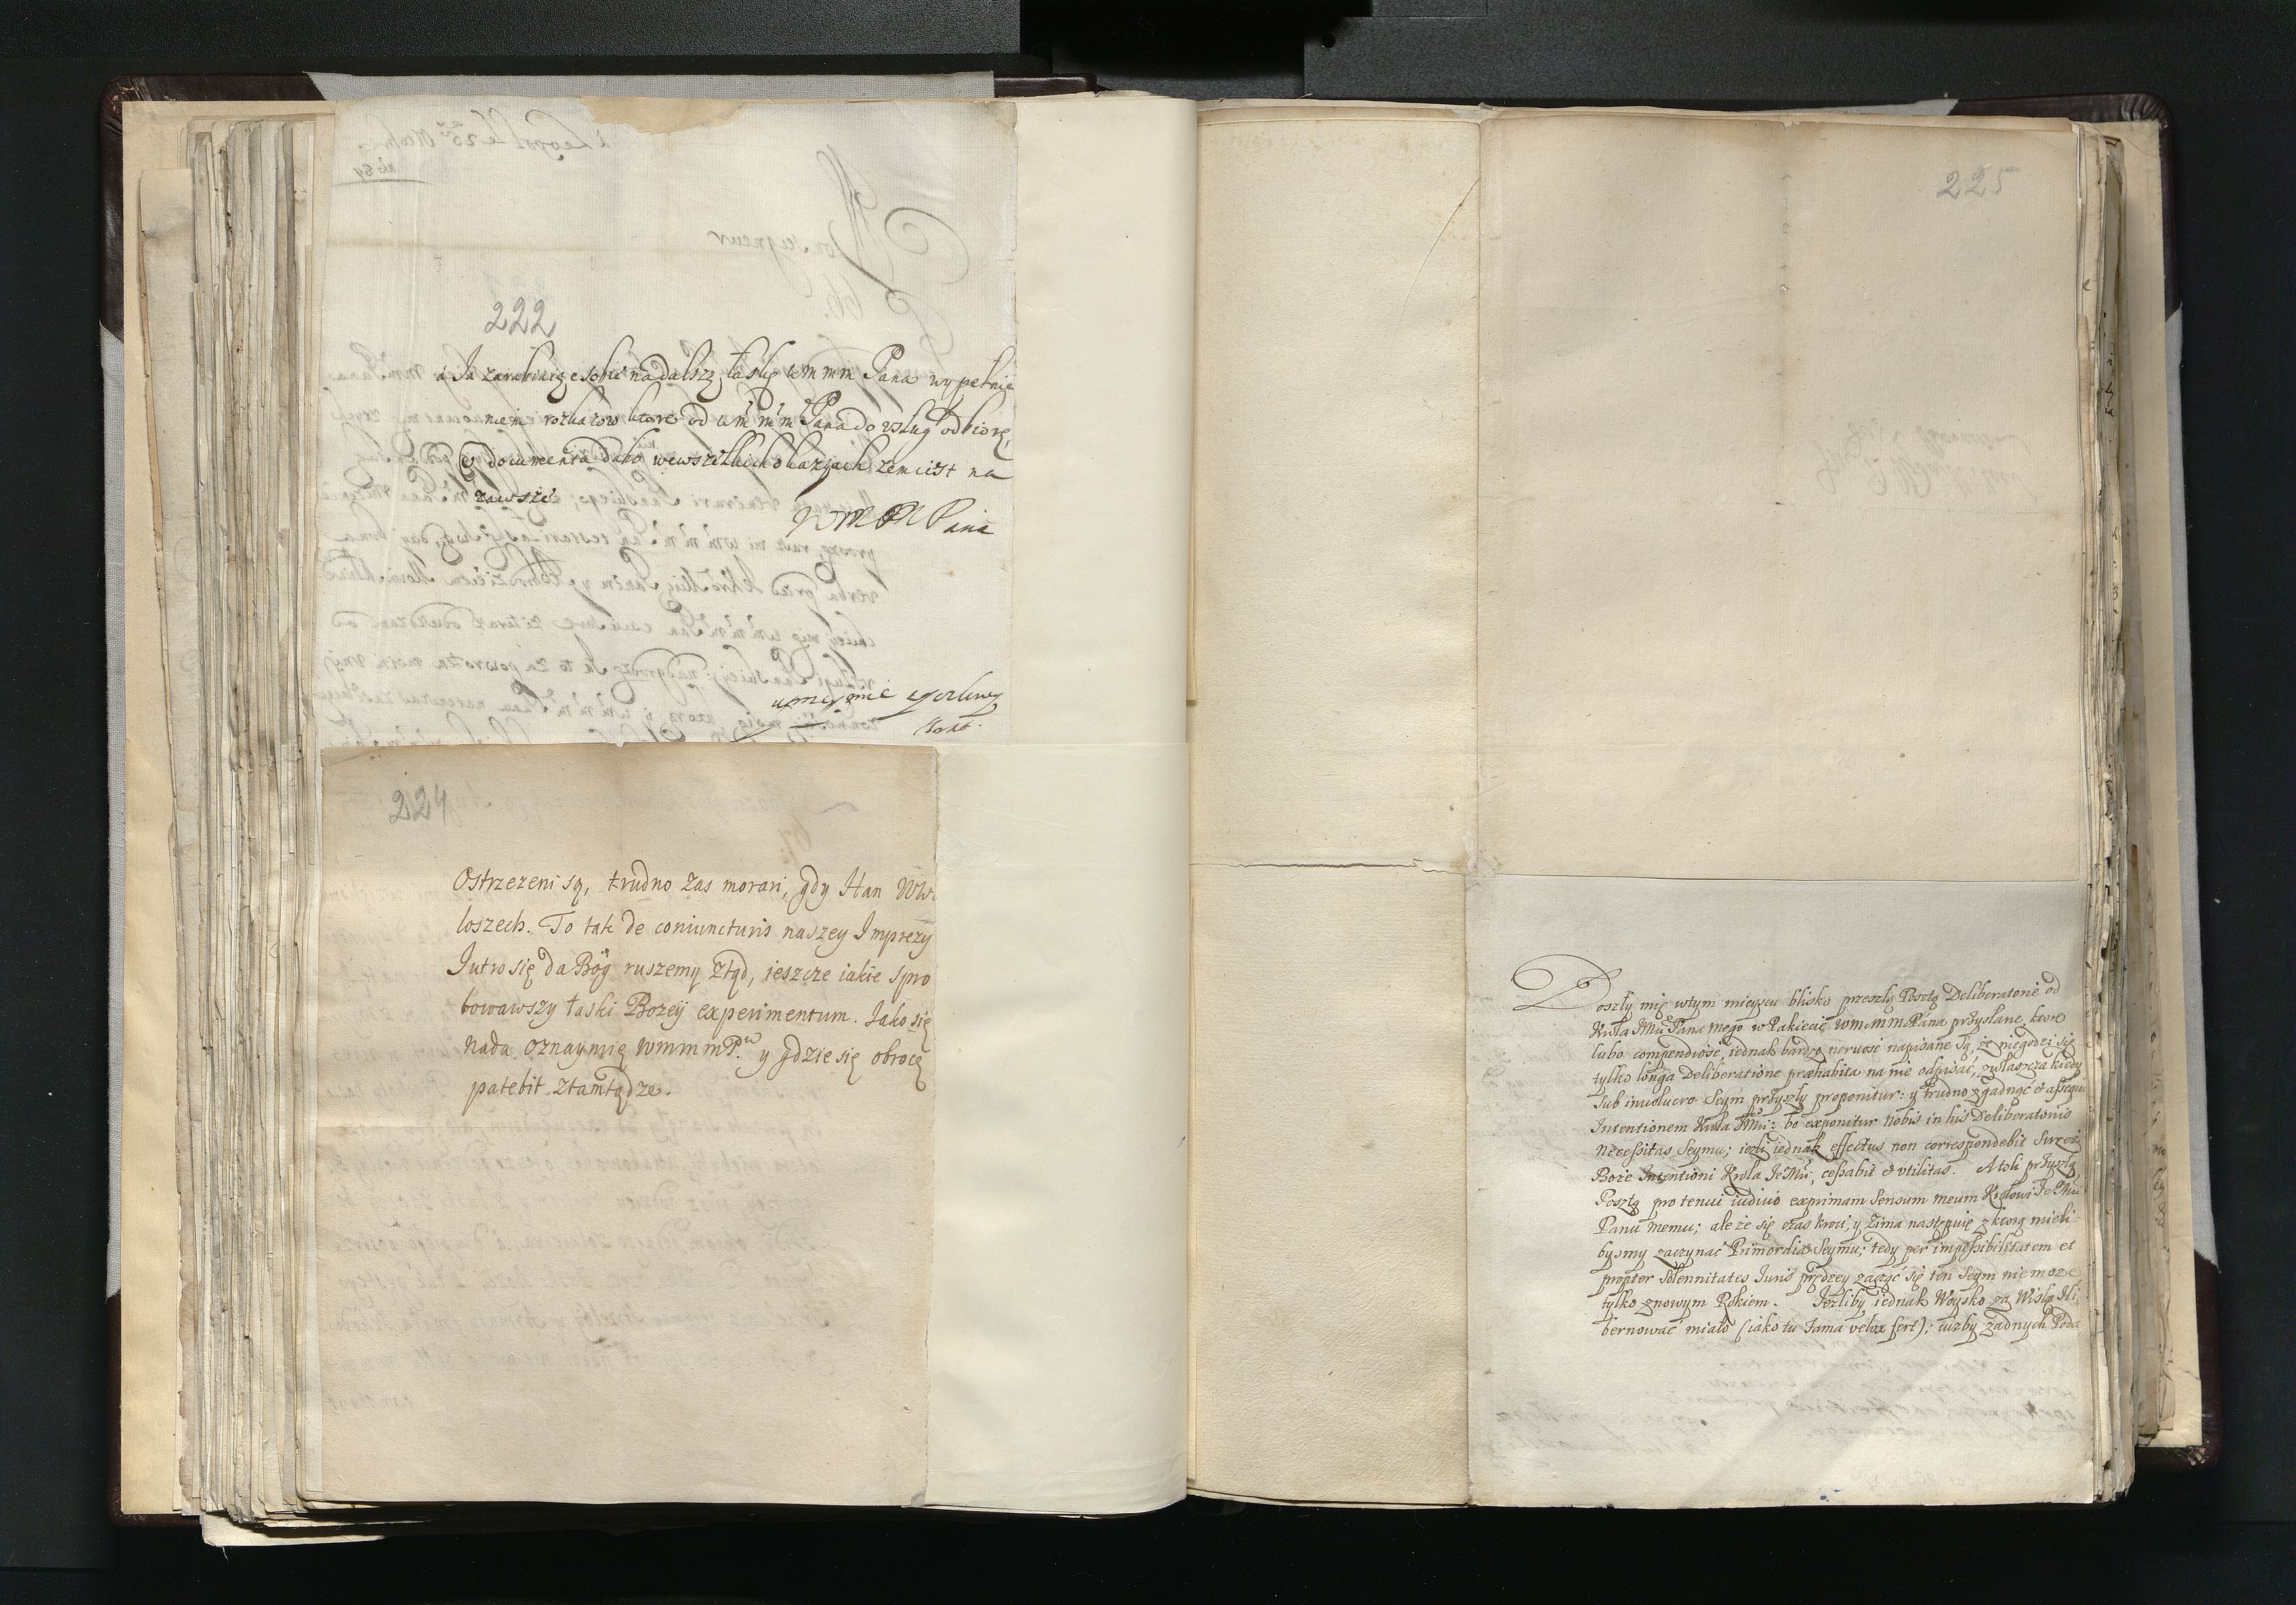 222
a Ja zarabiaiąc sobie na dalszą łaskę w m m m Pana wypełnie
niem roskazow ktore od w m m m Pana do usług odbiorę,
documenta dabo wewszelkich okazyach zem iest na
zawsze
WMMM Pana
uprzeymie zyczliwy
224
Ostrzezeni są, trudno zas morari, gdy Han wW
loszech. To tak de coniuncturis naszey Imprezy
Jutro się da Bog ruszemy ztąd, ieszcze iakie spro
bowawszy łaski Bozey experimentum. Jako się
nada oznaymię wmmmP. y gdzie się obrocę
patebit ztamtądze.
225
Doszły mię wtym mieyscu blisko przeszłą Posztą Deliberatorie od
Krola JMci Pana mego w Pakiecie wmmmPana przysłane, ktore
lubo compendiose, iednak bardzo neruose napisane są, że niegodzi się
tylko longa Deliberatione præhabita na nie odpisać, zwłaszcza kiedy
sub inuolucro Seym przyszły proponitur: y trudno zgadnąć et assequi
Intentionem Krola JMci: bo exponitur nobis in his Deliberatoriis
necessitas Seymu; iezli iednak effectus non correspondebit
Boże Intentioni Krola JeMci, cessabit et utilitas. Atoli przyszłą
Posztą pro tenui iudicio exprimam sensum meum Krolowi JeMci
Panu memu; ale że się czas kroci, y zima następuię z ktorą mieli
bysmy zaczynać Primordia Seymu; tedy per impossibilitatem et
propter solennitates Juris prędzey zacząć się ten Seym nie moze
tylko znowym Rokiem. Jezliby iednak Woysko za Wisłą Hi
bernować miało (iako tu Fama velox fert); iużby żadnych Poda